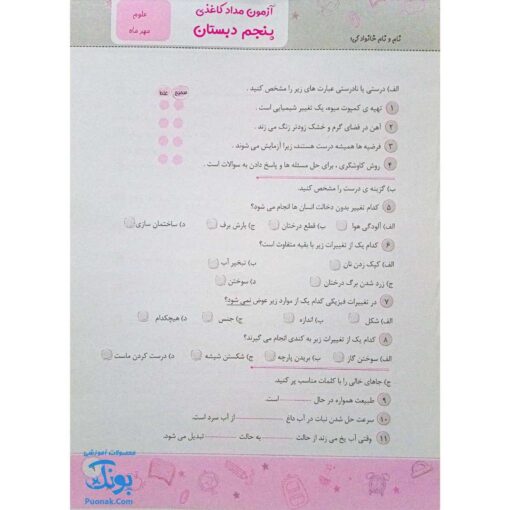 آزمون مداد کاغذی
پنجم دبستان
علوم
مهر ماه
نام و نام خانوادگی:
الف) درستی یا نادرستی عبارت های زیر را مشخص کنید .
صحیح غلط
۱ تهیه ی کمپوت میوه، یک تغییر شیمیایی است .
۲ آهن در فضای گرم و خشک زودتر زنگ می زند .
۳ فرضیه ها همیشه درست هستند، زیرا آزمایش می شوند .
۴ روش کاوشگری ، برای حل مسئله ها و پاسخ دادن به سوالات است .
ب) گزینه ی درست را مشخص کنید.
۵ کدام تغییر بدون دخالت انسان ها انجام می شود؟
الف) آلودگی هوا ب) قطع درختان ج) بارش برف د) ساختمان سازی
۶ کدام یک از تغییرات زیر با بقیه متفاوت است؟
الف) کپک زدن نان ب) تبخیر آب
ج) زرد شدن برگ درختان د) سوختن
۷ در تغییرات فیزیکی کدام یک از موارد زیر عوض نمی شود؟
الف) شکل ب) اندازه ج) جنس د) هیچکدام
۸ کدام یک از تغییرات زیر به کندی انجام می گیرند؟
الف) سوختن گاز ب) بریدن پارچه ج) شکستن شیشه د) درست کردن ماست
ج) جاهای خالی را با کلمات مناسب پر کنید.
۹ طبیعت همواره در حال است.
۱۰ سرعت حل شدن نبات در آب داغ از آب سرد است .
۱۱ وقتی آب یخ می زند از حالت به حالت تبدیل می شود.
محصولات آموزشی
پونک
Puonak.Com